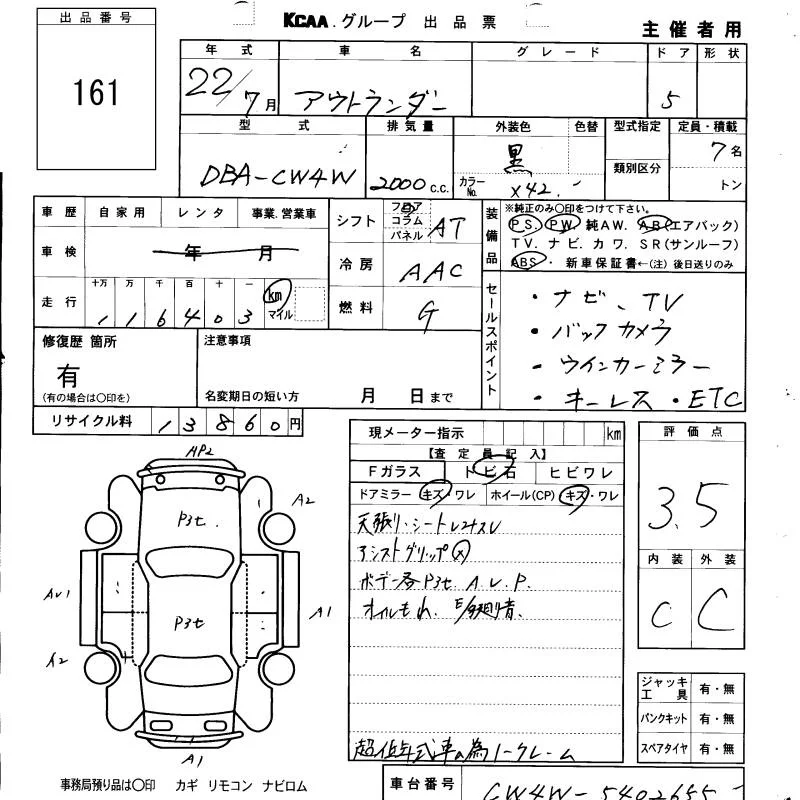 出品番号
161
KCAA.グループ 出品票
主催者用
年式 車名 グレード ドア 形状
22/7月 アウトランダー 5
型式 排気量 外装色 色替 型式指定 定員・積載
DBA-CW4W 2000c.c. 黒 カラーNo. X42. 類別区分 7名
トン
車歴 自家用 レンタ 事業.営業車
車検 年 月
走行 十万 万 千 百 十 一
1 1 6 4 0 3 km マイル
シフト フロア コラム パネル AT
冷房 AAC
燃料 G
装備品
※純正のみ〇印をつけて下さい。
P.S. P.W. 純AW. A.B(エアバック)
TV. ナビ. カワ. SR(サンルーフ)
ABS・ 新車保証書←(注) 後日送りのみ
セールスポイント
・ナビ、TV
・バックカメラ
・ウインカーミラー
・キーレス・ETC
修復歴 箇所
有
(有の場合は〇印を)
注意事項
名変期日の短い方 月 日まで
リサイクル料 13860円
現メーター指示 km
【査定員記入】
Fガラス トビ石 ヒビワレ
ドアミラー キズ・ワレ ホイール(CP) キズ・ワレ
天張り・シート
アシストグリップ
ボデー各P3t. A.U.P.
オイルもれ.
超低年式車の為ノークレーム
評価点
3.5
内装 外装
C C
ジャッキ工具 有・無
パンクキット 有・無
スペアタイヤ 有・無
AP2
P3t.
A2
AU1
P3t
A1
A2
A1
事務局預り品は〇印 カギ リモコン ナビロム
車台番号 CW4W-5402655